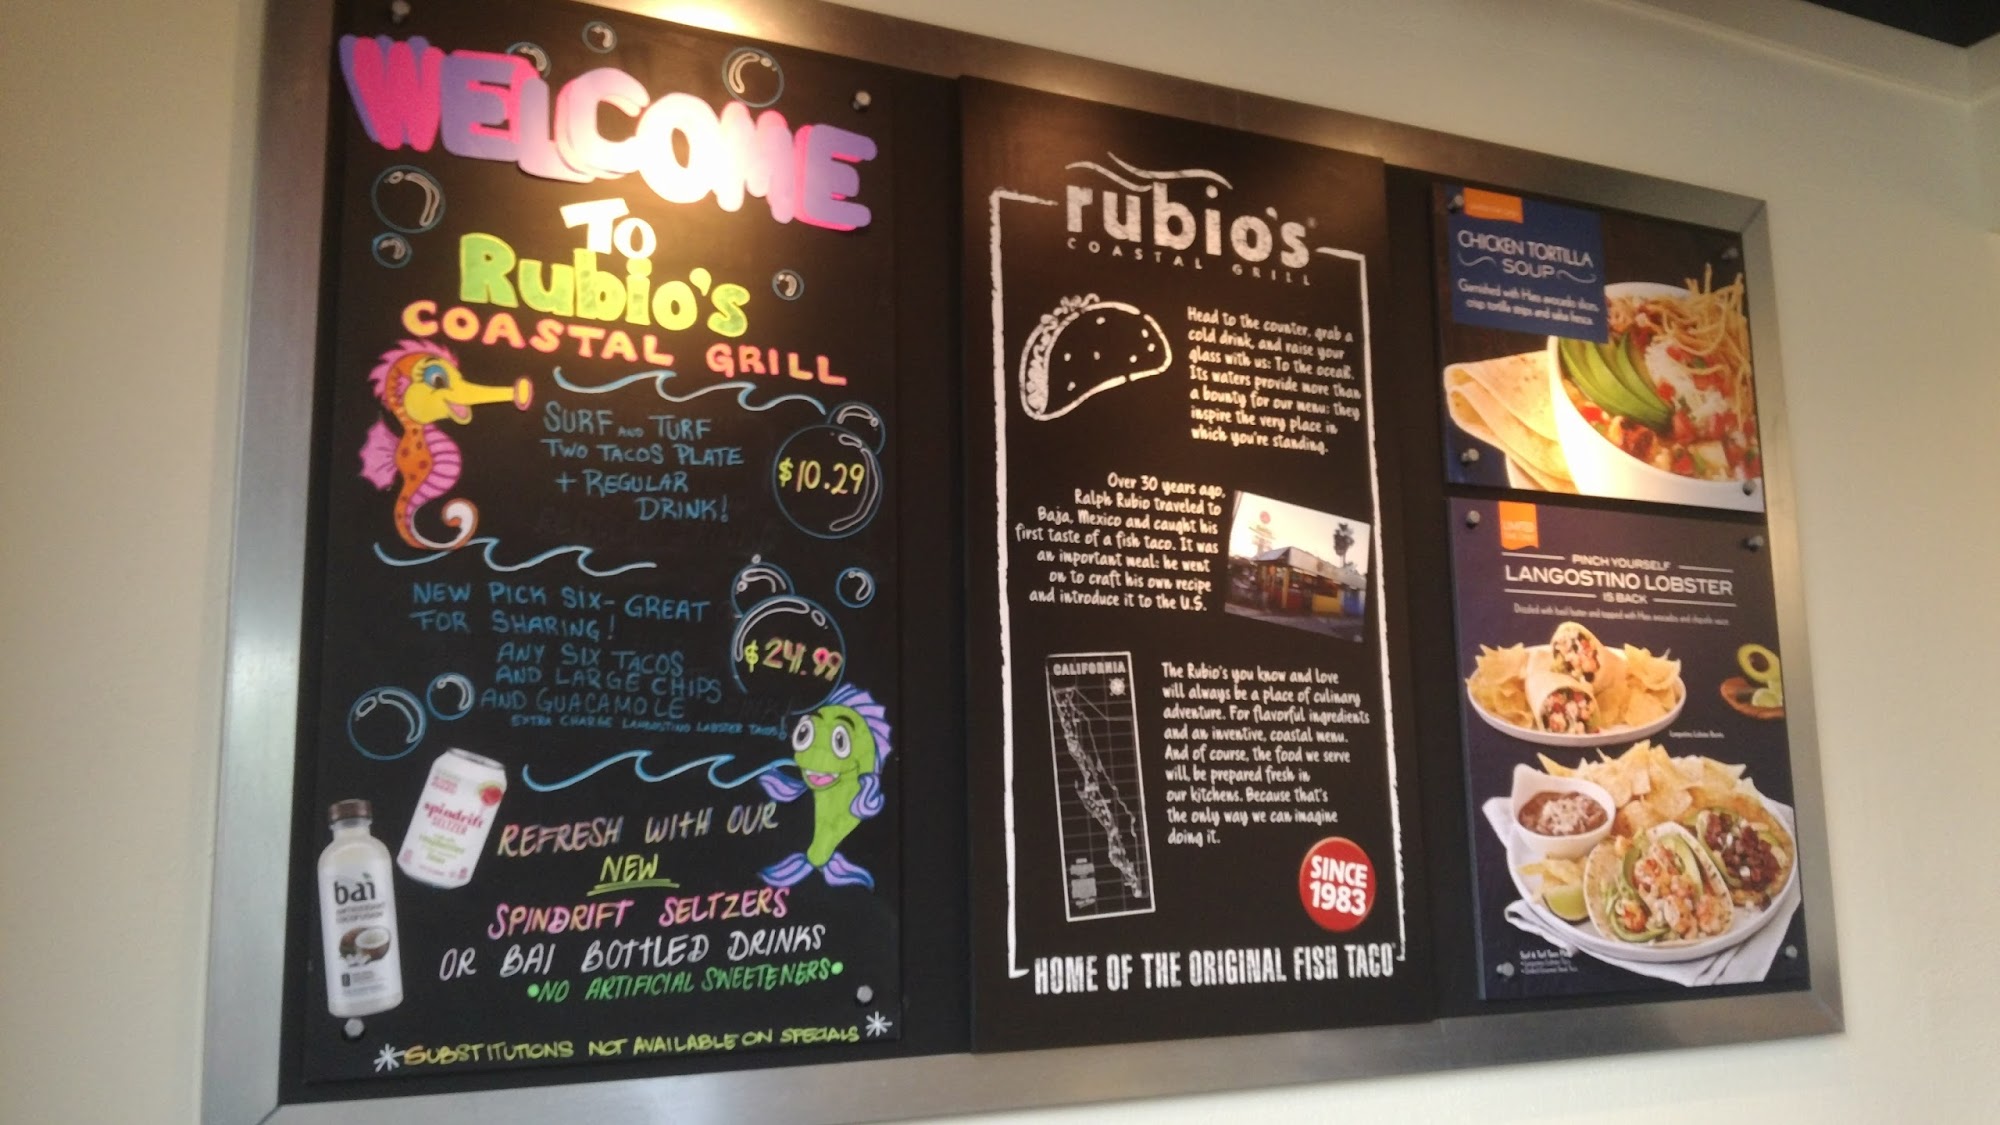 WELCOME
TO
RUBIO'S
COASTAL GRILL
SURF AND TURF
TWO TACOS PLATE
+ REGULAR
DRINK!
$10.29
NEW PICK SIX- GREAT
FOR SHARING!
ANY SIX TACOS
AND LARGE CHIPS
AND GUACAMOLE
EXTRA CHARGE LANGOSTINO LOBSTER TACOS!
$24.99
spindrift
SELTZER
bai
REFRESH WITH OUR
NEW
SPINDRIFT SELTZERS
OR BAI BOTTLED DRINKS
•NO ARTIFICIAL SWEETENERS•
*SUBSTITUTIONS NOT AVAILABLE ON SPECIALS*
rubio's®
COASTAL GRILL
Head to the counter, grab a
cold drink, and raise your
glass with us: To the ocean.
Its waters provide more than
a bounty for our menu: they
inspire the very place in
which you're standing.
Over 30 years ago,
Ralph Rubio traveled to
Baja, Mexico and caught his
first taste of a fish taco. It was
an important meal: he went
on to craft his own recipe
and introduce it to the U.S.
CALIFORNIA
The Rubio's you know and love
will always be a place of culinary
adventure. For flavorful ingredients
and an inventive, coastal menu.
And of course, the food we serve
will be prepared fresh in
our kitchens. Because that's
the only way we can imagine
doing it.
SINCE
1983
HOME OF THE ORIGINAL FISH TACO®
CHICKEN TORTILLA
SOUP
Garnished with Hass avocado slices,
crisp tortilla strips and salsa fresca.
LIMITED
TIME ONLY
PINCH YOURSELF
LANGOSTINO LOBSTER
IS BACK
Drizzled with basil butter and topped with Hass avocado and chipotle sauce.
Langostino Lobster Burrito
Surf & Turf Taco Plate